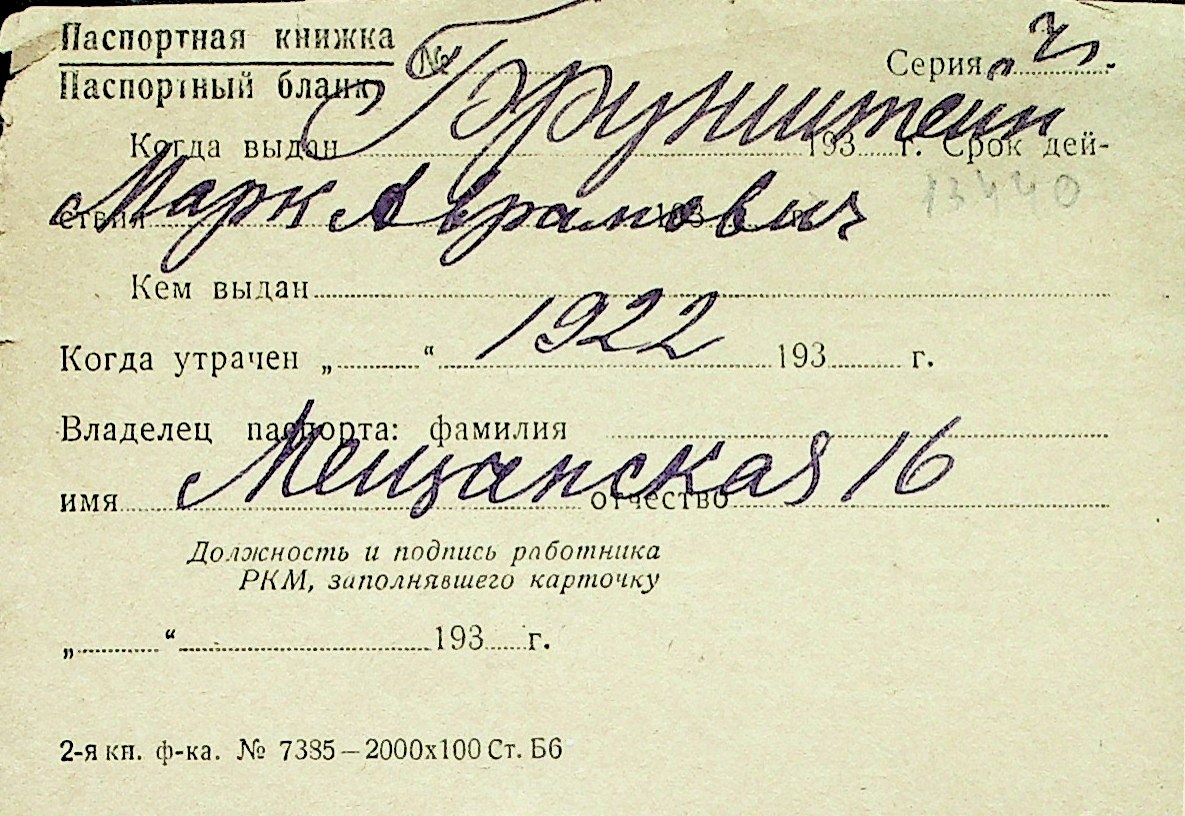 Паспортная книжка
Паспортный бланк № Серия „ Ч .
Брунштейн
Когда выдан 193 г. Срок дей-
ствия 193 г.
Марк Абрамович
13440
Кем выдан
1922
Когда утрачен „ “ 193 г.
Владелец паспорта: фамилия
Мещанская 16
имя отчество
Должность и подпись работника
РКМ, заполнявшего карточку
„ “ 193 г.
2-я кн. ф-ка. № 7385—2000х100 Ст. Б6